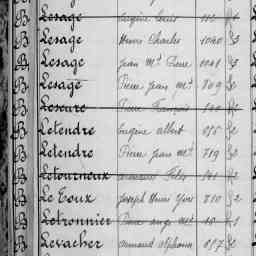 B Lesage Eugène Louis
B Lesage Henri Charles 1040 S3
B Lesage Jean Mie Pierre 1041 S3
B Lesage Pierre Jean Mie 709 S2
B Lescure Pierre François
B Letendre Eugène Albert 815 S2
B Letendre Pierre Jean Mie 789 S2
B Letourneux Félix
B Le Toux Joseph Henri Yves 710 S2
B Letronnier Pierre Ange Mie
B Levacher Armand Alphonse 817 S2